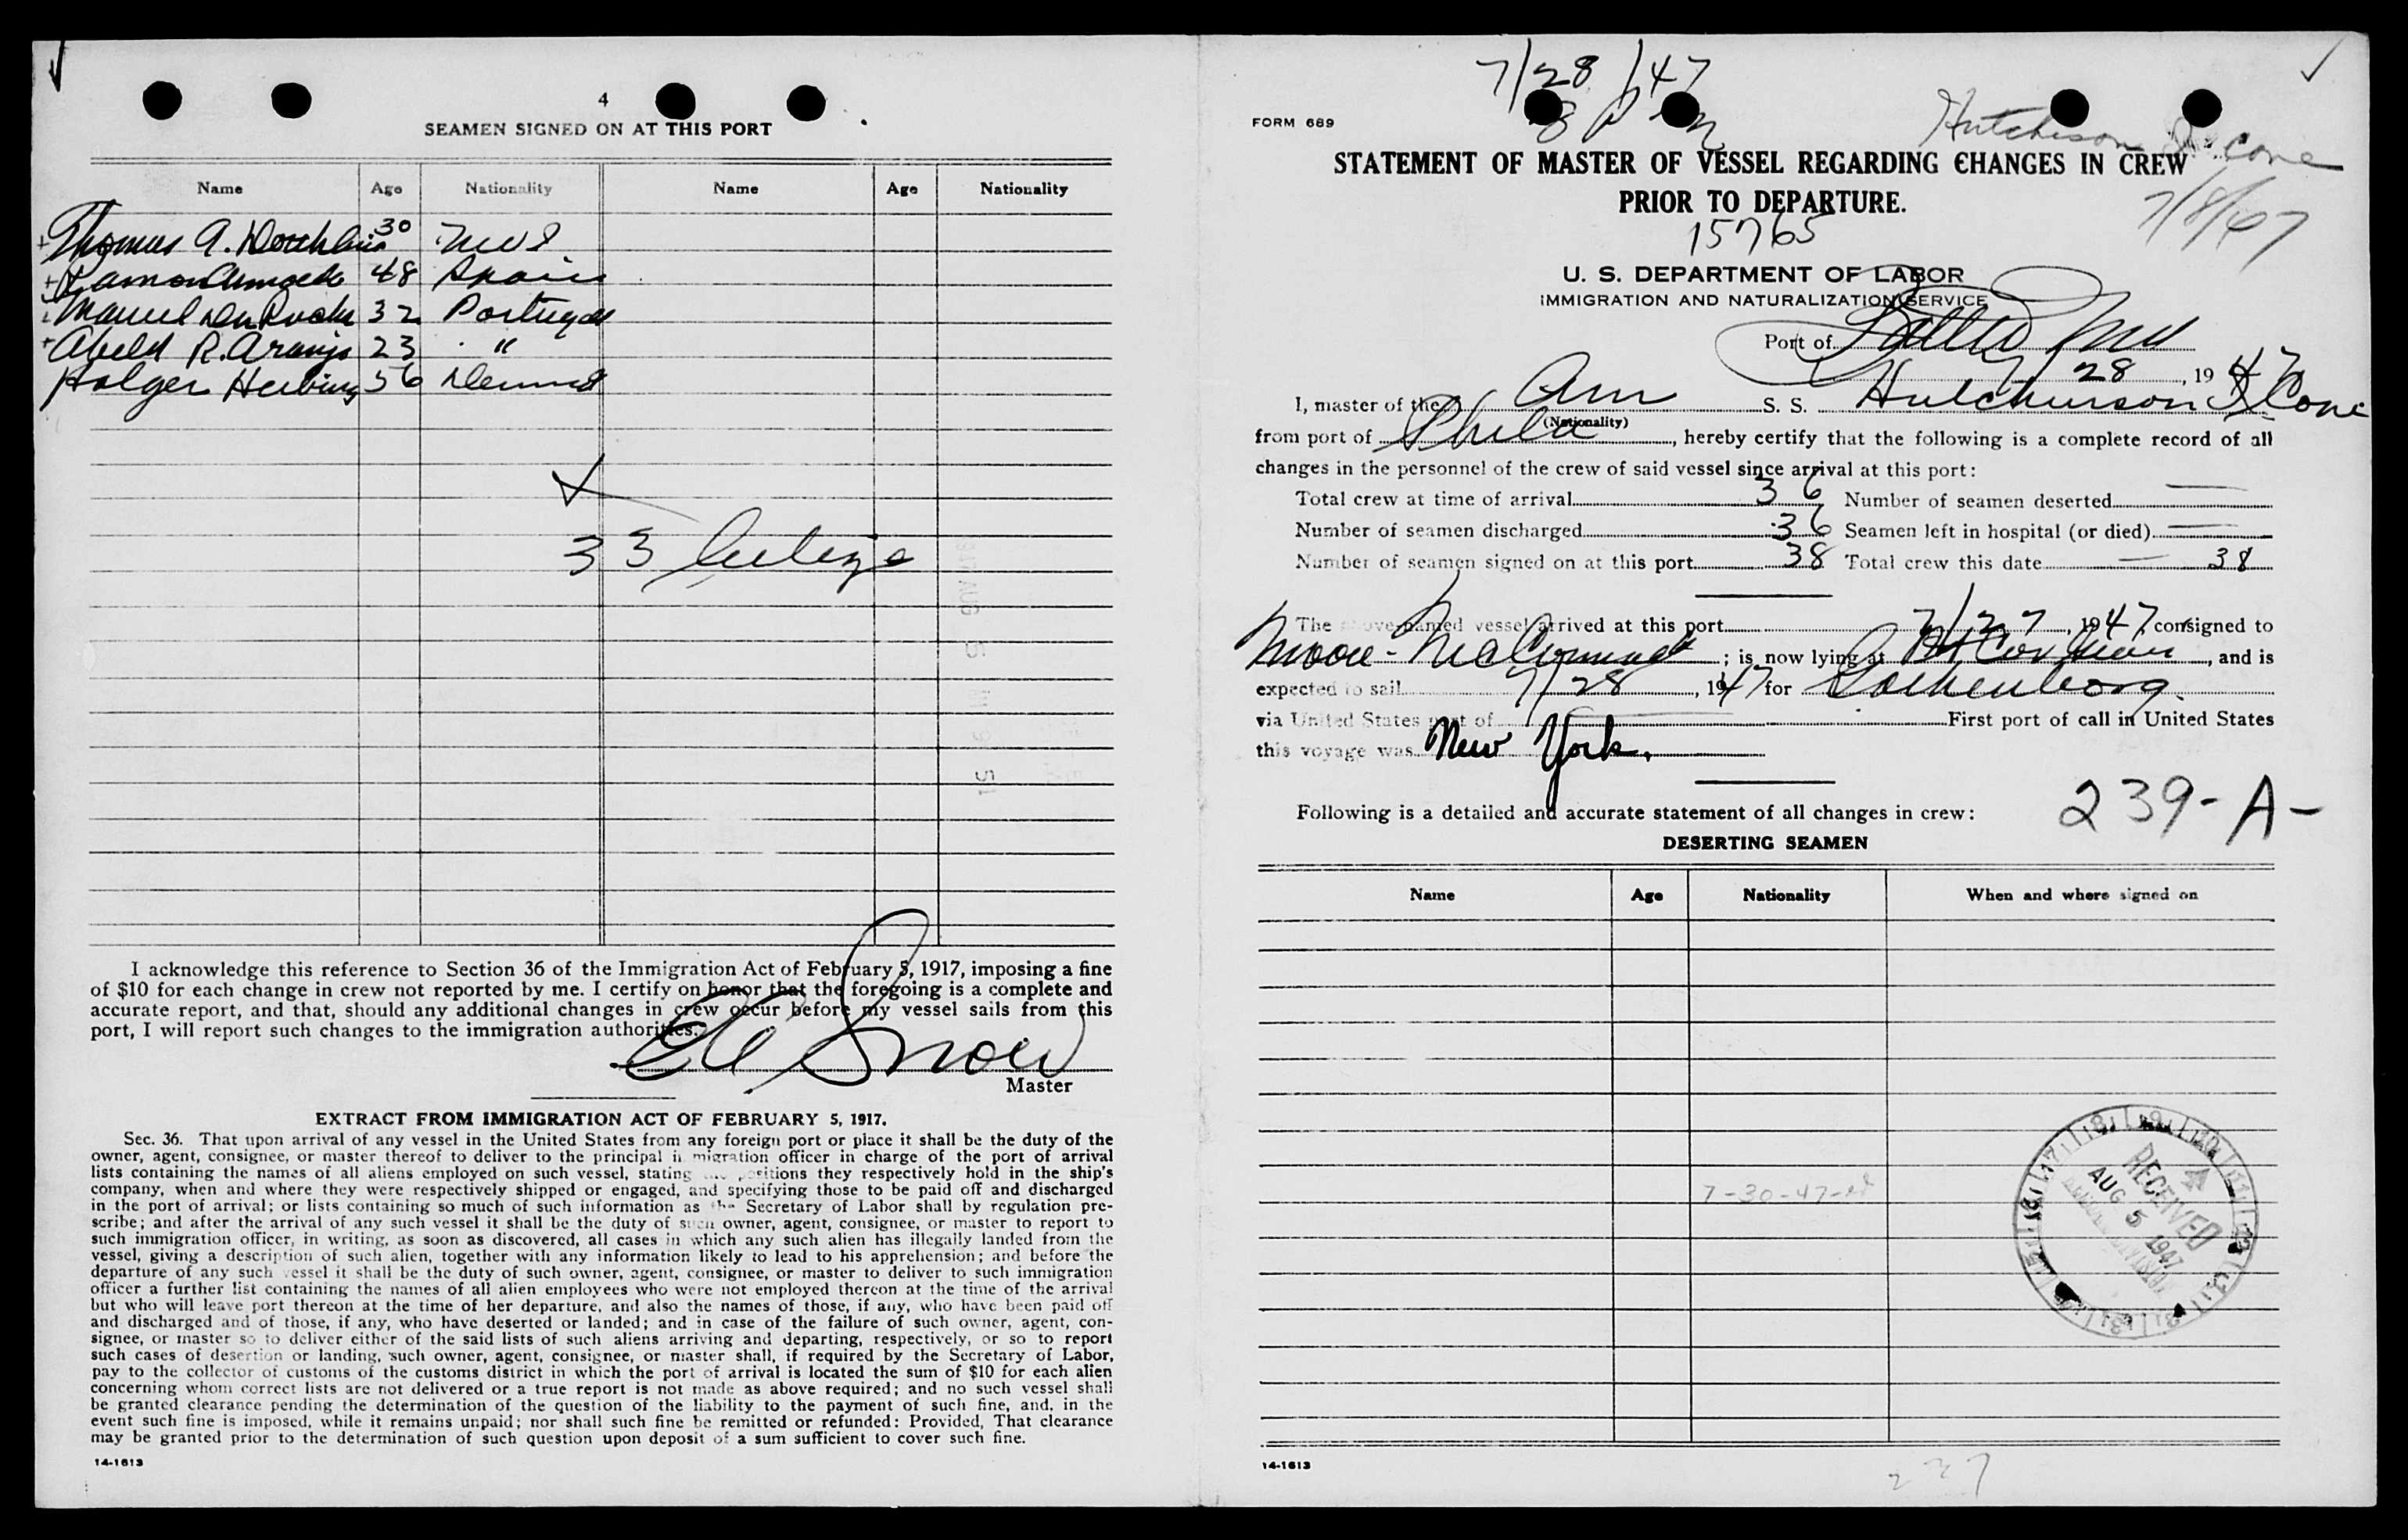 4
SEAMEN SIGNED ON AT THIS PORT
Name Age Nationality Name Age Nationality
Thomas A. 30
Ramon 48 Spain
Manuel 32 Portugal
R. Araujo 23 "
Holger 56
33
I acknowledge this reference to Section 36 of the Immigration Act of February 5, 1917, imposing a fine
of $10 for each change in crew not reported by me. I certify on honor that the foregoing is a complete and
accurate report, and that, should any additional changes in crew occur before my vessel sails from this
port, I will report such changes to the immigration authorities.
Snow
Master
EXTRACT FROM IMMIGRATION ACT OF FEBRUARY 5, 1917.
Sec. 36. That upon arrival of any vessel in the United States from any foreign port or place it shall be the duty of the
owner, agent, consignee, or master thereof to deliver to the principal immigration officer in charge of the port of arrival
lists containing the names of all aliens employed on such vessel, stating the positions they respectively hold in the ship's
company, when and where they were respectively shipped or engaged, and specifying those to be paid off and discharged
in the port of arrival; or lists containing so much of such information as the Secretary of Labor shall by regulation pre-
scribe; and after the arrival of any such vessel it shall be the duty of such owner, agent, consignee, or master to report to
such immigration officer, in writing, as soon as discovered, all cases in which any such alien has illegally landed from the
vessel, giving a description of such alien, together with any information likely to lead to his apprehension; and before the
departure of any such vessel it shall be the duty of such owner, agent, consignee, or master to deliver to such immigration
officer a further list containing the names of all alien employees who were not employed thereon at the time of the arrival
but who will leave port thereon at the time of her departure, and also the names of those, if any, who have been paid off
and discharged and of those, if any, who have deserted or landed; and in case of the failure of such owner, agent, con-
signee, or master so to deliver either of the said lists of such aliens arriving and departing, respectively, or so to report
such cases of desertion or landing, such owner, agent, consignee, or master shall, if required by the Secretary of Labor,
pay to the collector of customs of the customs district in which the port of arrival is located the sum of $10 for each alien
concerning whom correct lists are not delivered or a true report is not made as above required; and no such vessel shall
be granted clearance pending the determination of the question of the liability to the payment of such fine, and, in the
event such fine is imposed, while it remains unpaid; nor shall such fine be remitted or refunded: Provided, That clearance
may be granted prior to the determination of such question upon deposit of a sum sufficient to cover such fine.
14-1613
7/28/47
FORM 689
Hutchison I Cone
7/8/47
STATEMENT OF MASTER OF VESSEL REGARDING CHANGES IN CREW
PRIOR TO DEPARTURE.
15765
U. S. DEPARTMENT OF LABOR
IMMIGRATION AND NATURALIZATION SERVICE
Port of Balto Md
7 28, 1947
I, master of the Am S. S. Hutchinson I Cone
(Nationality)
from port of Phila, hereby certify that the following is a complete record of all
changes in the personnel of the crew of said vessel since arrival at this port:
Total crew at time of arrival 36 Number of seamen deserted —
Number of seamen discharged 36 Seamen left in hospital (or died) —
Number of seamen signed on at this port 38 Total crew this date 38
The above-named vessel arrived at this port 7/27, 1947, consigned to
Moore-McCormack; is now lying at, and is
expected to sail 7/28, 1947 for Gothenborg
via United States port of — First port of call in United States
this voyage was New York.
Following is a detailed and accurate statement of all changes in crew:
239-A-
DESERTING SEAMEN
Name Age Nationality When and where signed on
7-30-47
RECEIVED
AUG 5 1947
14-1613
237